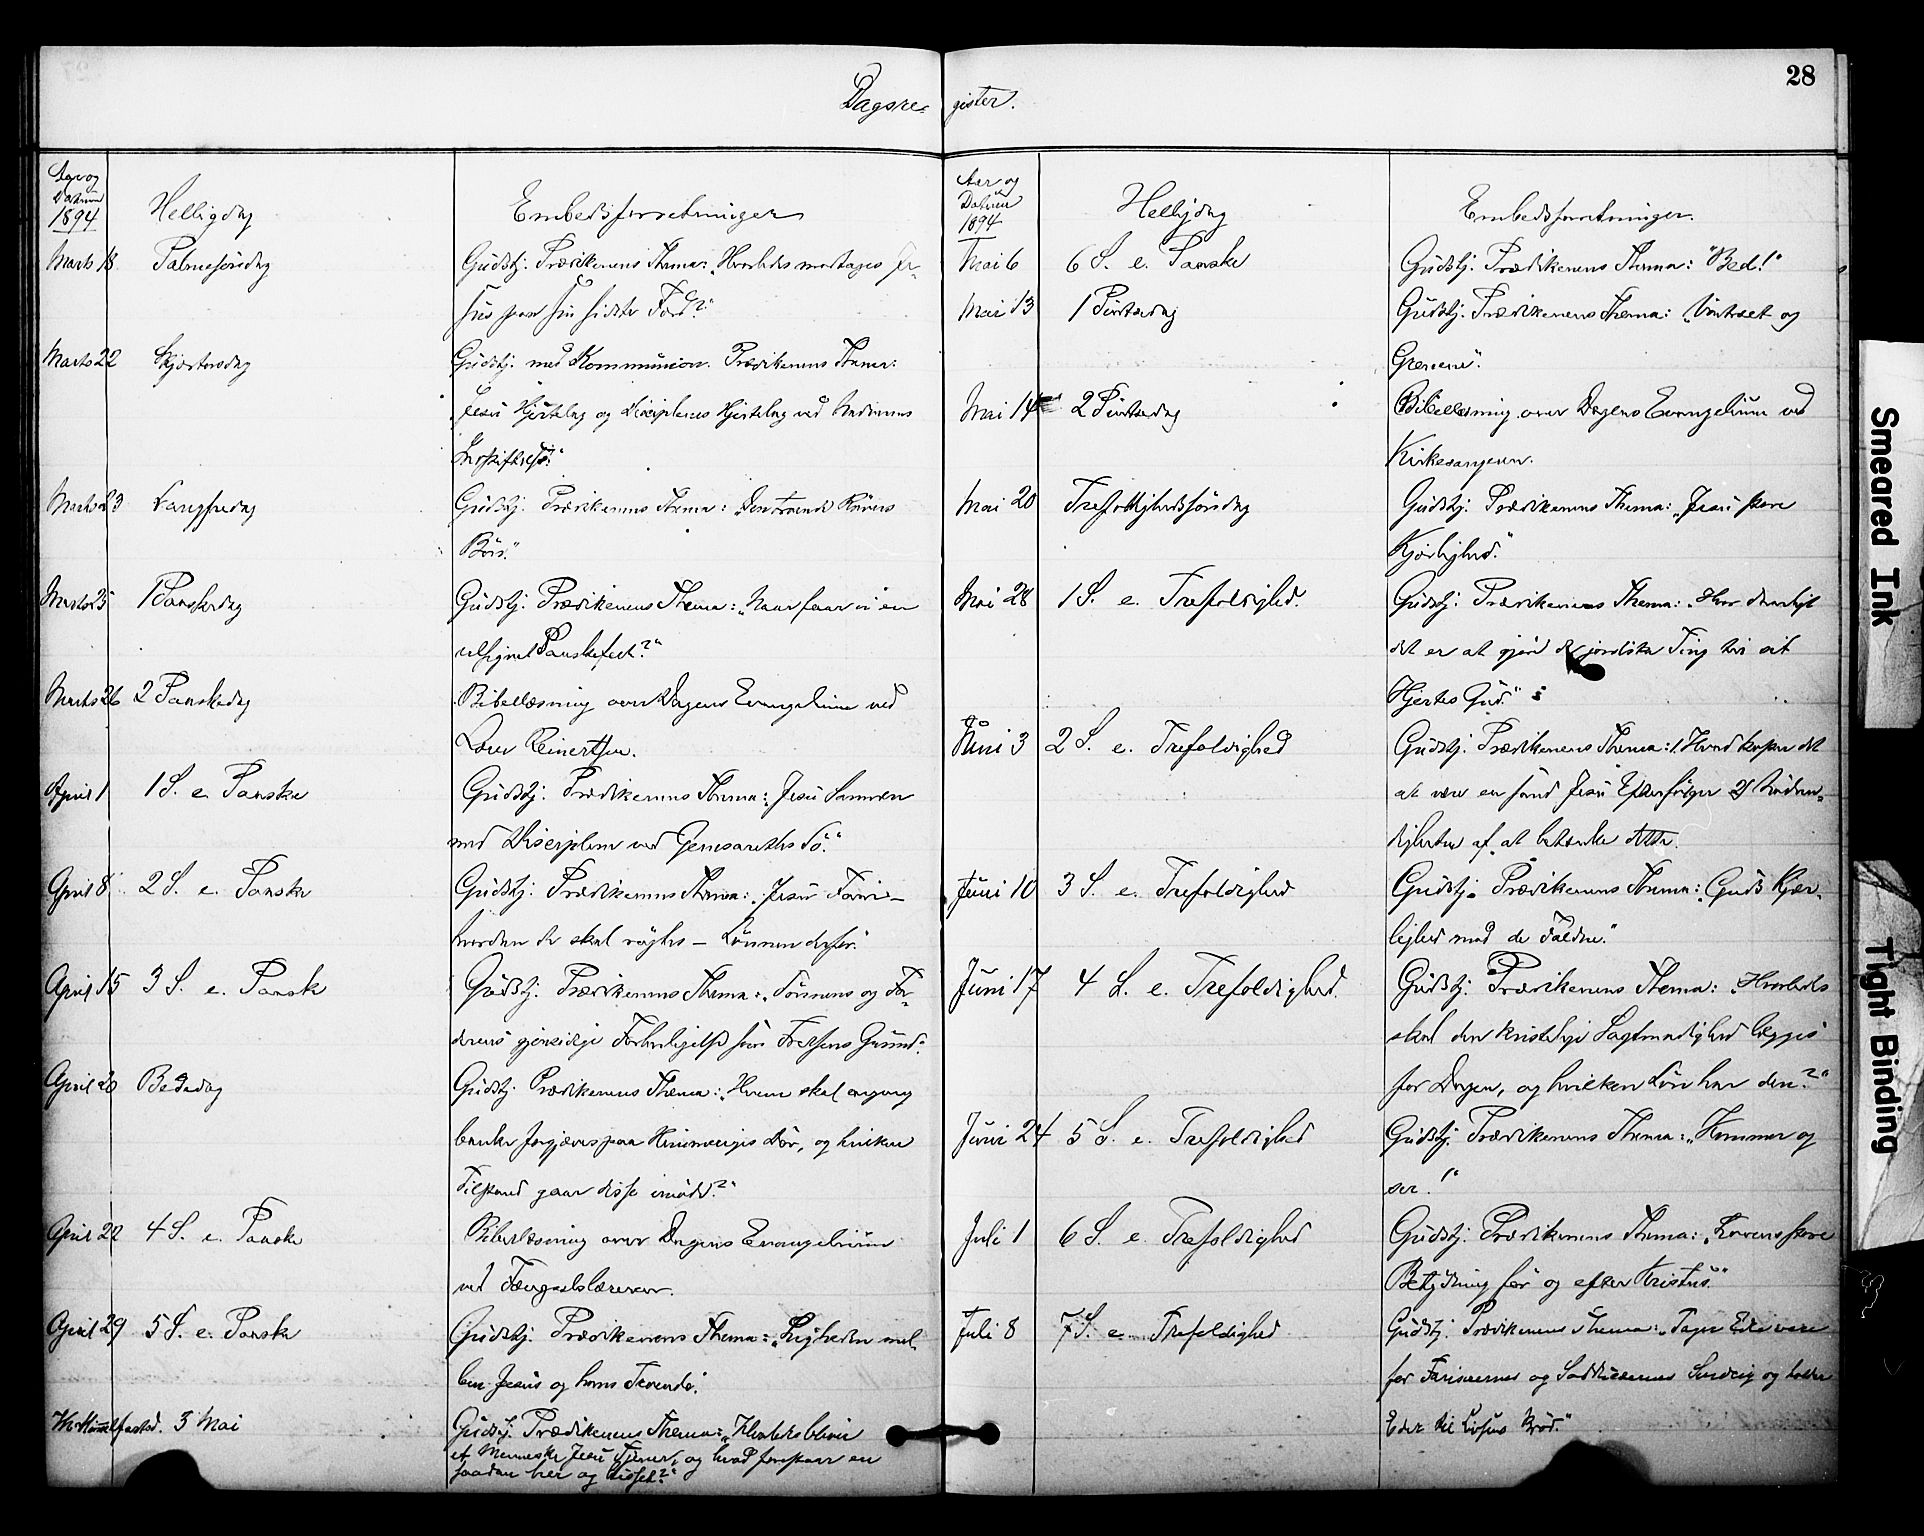 28
Dagsre- gister.
Aar og
Datum
1894
Helligdag
Embedsforretninger
Marts 18
Palmesöndag
Gudstj. Prædikenens Thema: „Hvorledes modtages Je-
sus paa sin sidste Færd?“
Marts 22
Skjærtorsdag
Gudstj. med Kommunion. Prædikenens Thema:
Jesu Hjertelag og Disciplenes Hjertelag ved Nadverens
Indstiftelse.“
Marts 23
Langfredag
Gudstj. Prædikenens Thema: „Den troende Rövers
Bön.“
Marts 25
1 Paaskedag
Gudstj. Prædikenens Thema: „Naar faar vi en
velsignet Paaskefest?“
Marts 26
2 Paaskedag
Bibellæsning over Dagens Evangelium ved
Reinertsen.
April 1
1 S. e. Paaske
Gudstj. Prædikenens Thema: „Jesu Samvær
med Disciplene ved Genesareths Sö.“
April 8
2 S. e. Paaske
Gudstj. Prædikenens Thema: „Jesu Faar –
hvordan de skal vogtes – Lönnen derfor.“
April 15
3 S. e. Paaske
Gudstj. Prædikenens Thema: „Sönnens og Fa-
derens gjensidige Forherligelse som Frelsens Grund.“
April 20
Bededag
Gudstj. Prædikenens Thema: „Hvem skal engang
banke forgjæves paa Himmeriges Dör, og hvilken
Tilstand gaar disse imöde?“
April 22
4 S. e. Paaske
Bibellæsning over Dagens Evangelium
ved Fængselslæreren.
April 29
5 S. e. Paaske
Gudstj. Prædikenens Thema: „Ligheden mel-
lem Jesus og hans Troende.“
Kr. Himmelfartsd. 3 Mai
Gudstj. Prædikenens Thema: „Hvorledes bliver
et Menneske Jesu Tjener, og hvad forestaar en
saadan her og hisset?“
Aar og
Datum
1894
Helligdag
Embedsforretninger.
Mai 6
6 S. e. Paaske
Gudstj. Prædikenens Thema: “Bed!“
Mai 13
1 Pintsedag
Gudstj. Prædikenens Thema: „Vintræet og
Grenene“.
Mai 14
2 Pintsedag
Bibellæsning over Dagens Evangelium ved
Kirkesangeren.
Mai 20
Trefoldighedssöndag
Gudstj. Prædikenens Thema: „Jesu store
Kjærlighed.“
Mai 28
1 S. e. Trefoldighed.
Gudstj. Prædikenens Thema: „Hvor daarligt
det er at gjöre de jordiske Ting til sit
Hjertes Gud.“
Juni 3
2 S. e. Trefoldighed
Gudstj. Prædikenens Thema: 1. Hvad koster det
at være en sand Jesu Efterfölger 2) Nödven-
digheden af at betænke dette.
Juni 10
3 S. e. Trefoldighed
Gudstj. Prædikenens Thema: „Guds Kjær-
lighed mod de Faldne.“
Juni 17
4 S. e. Trefoldighed.
Gudstj. Prædikenens Thema: „Hvorledes
skal den kristelige Sagtmodighed lægges
for Dagen, og hvilken Lön har den?“
Juni 24
5 S. e. Trefoldighed
Gudstj. Prædikenens Thema: „Kommer og
ser!“
Juli 1
6 S. e. Trefoldighed
Gudstj. Prædikenens Thema: „Lovens store
Betydning för og efter Kristus.“
Juli 8
7 S. e. Trefoldighed
Gudstj. Prædikenens Thema: „Tager Eder vare
for Farisæernes og Saddukæernes Surdeig og holder
Eder til Livsens Bröd.“
Smeared Ink
Tight Binding